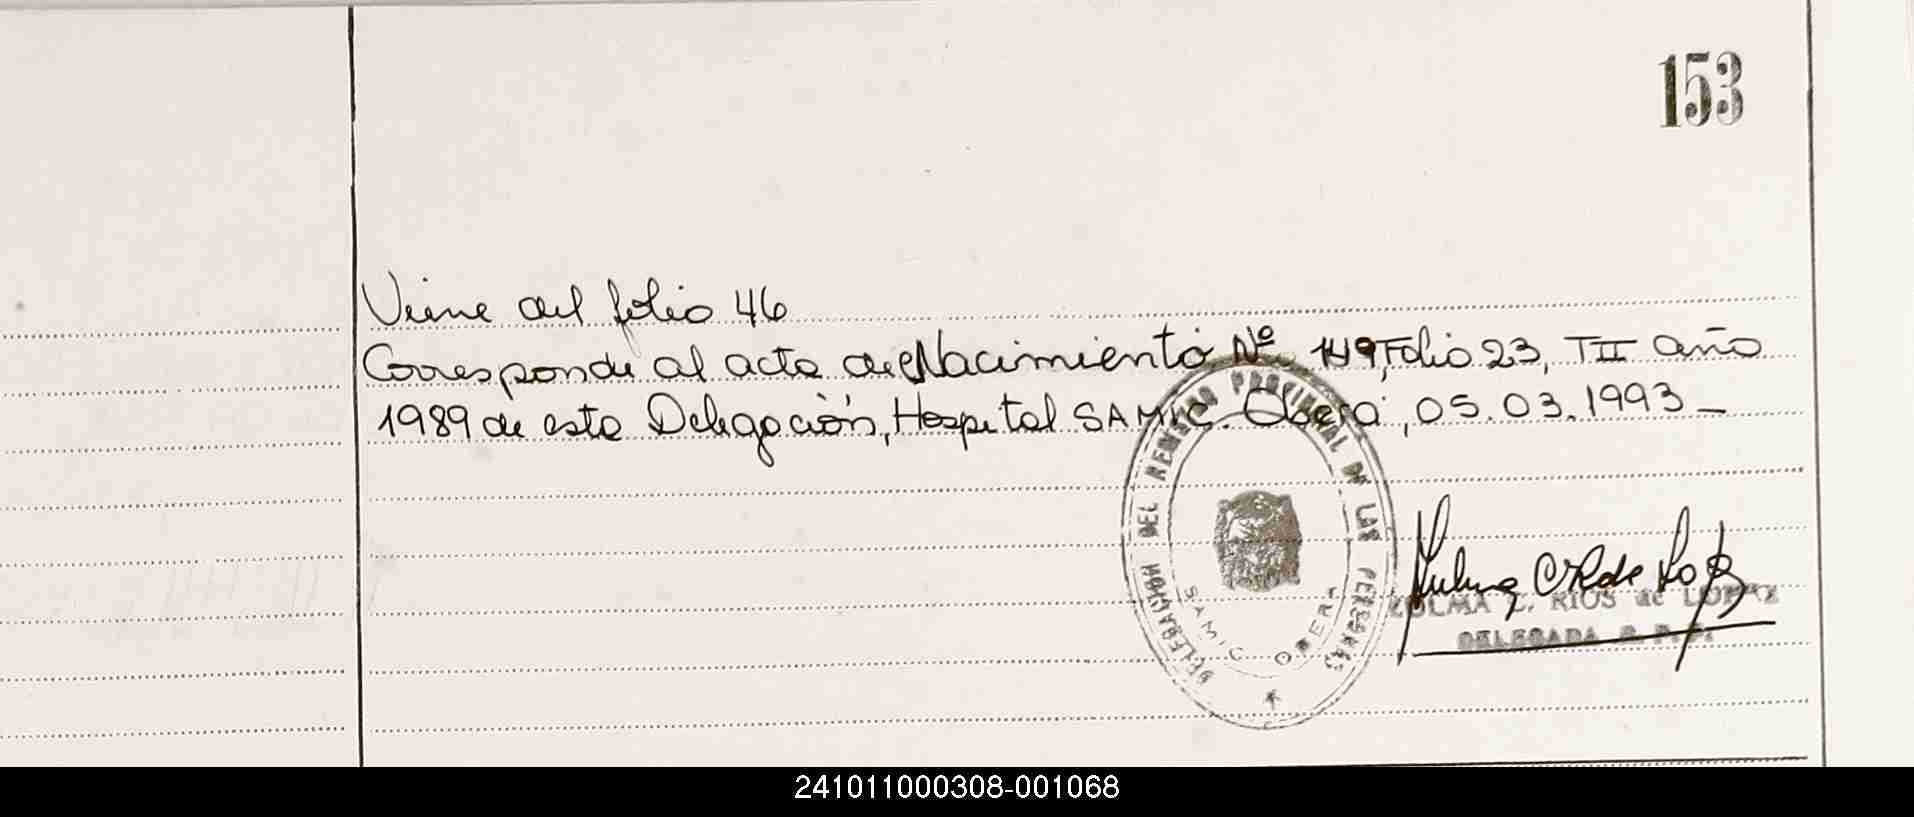 153
Viene del folio 46
Corresponde al acta de Nacimiento Nº 149, Folio 23, TII año
1989 de esta Delegación, Hospital SAMIC. Oberá, 05.03.1993_
DELEGACION DEL REGISTRO PROVINCIAL DE LAS PERSONAS
SAMIC OBERA
ZULMA C. RIOS de LOPEZ
DELEGADA R. P. P.
241011000308-001068